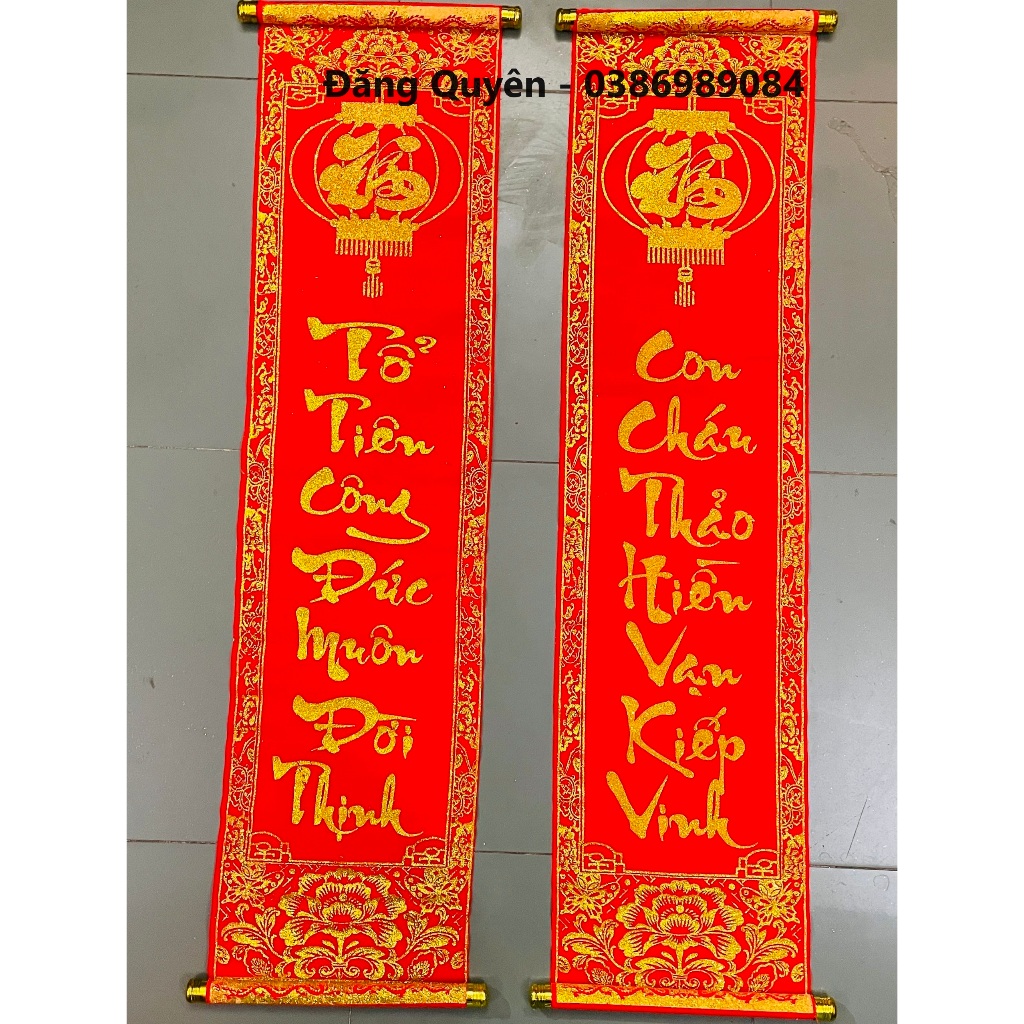 Đăng Quyên - 0386989084
福
Tổ
Tiên
Công
Đức
Muôn
Đời
Thịnh
福
Con
Cháu
Thảo
Hiền
Vạn
Kiếp
Vinh